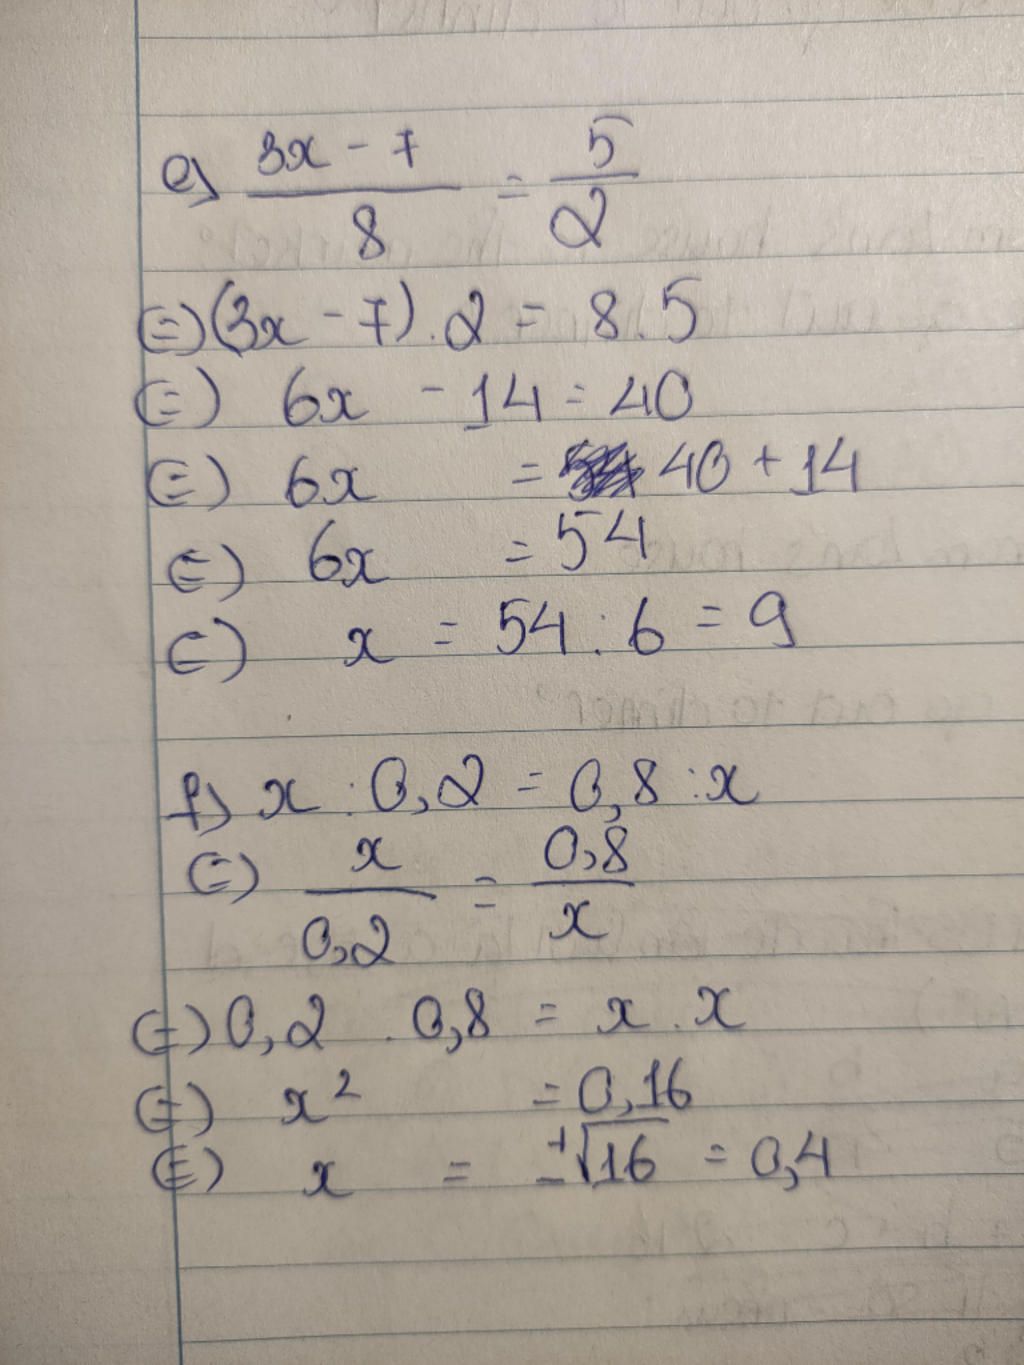 e) 3x - 7 / 8 = 5 / 2
(=) (3x - 7) . 2 = 8 . 5
(=) 6x - 14 = 40
(=) 6x = 40 + 14
(=) 6x = 54
(=) x = 54 : 6 = 9
f) x : 0,2 = 0,8 : x
(=) x / 0,2 = 0,8 / x
(=) 0,2 . 0,8 = x . x
(=) x² = 0,16
(=) x = ±√16 = 0,4